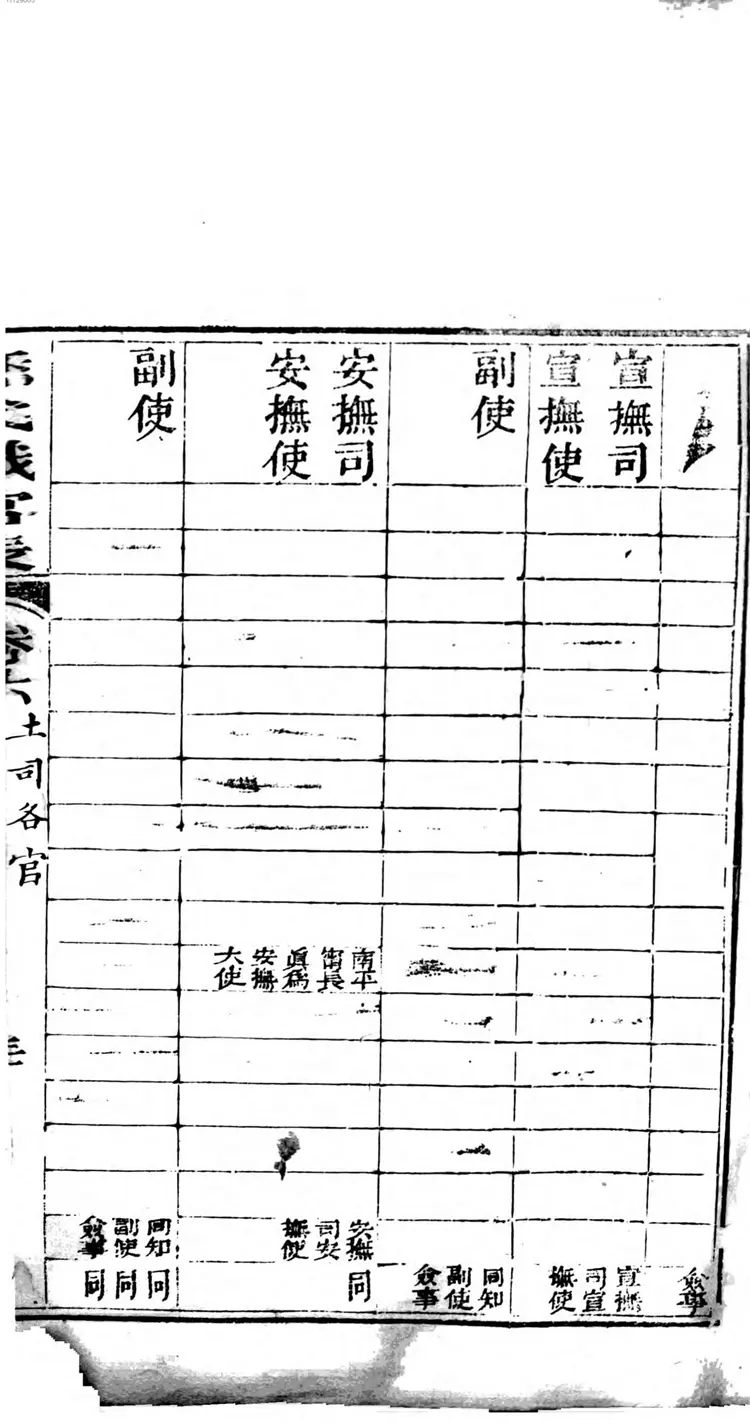 僉事
宣撫司
宣撫使
宣撫
司宣
撫使
副使
同知
副使
僉事
安撫司
安撫使
南平
甯長
眞爲
安撫
大使
安撫
司安
撫使
同
副使
同知
副使
僉事
同
同
同
土司各官